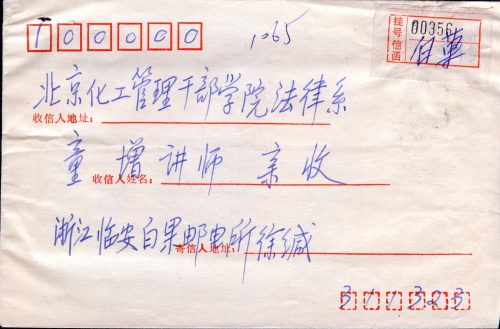 100000
1065
挂号信函
00356
白果
北京化工管理干部学院法律系
收信人地址:
童增讲师 亲收
收信人姓名:
浙江临安白果邮电所徐缄
寄信人地址:
311323